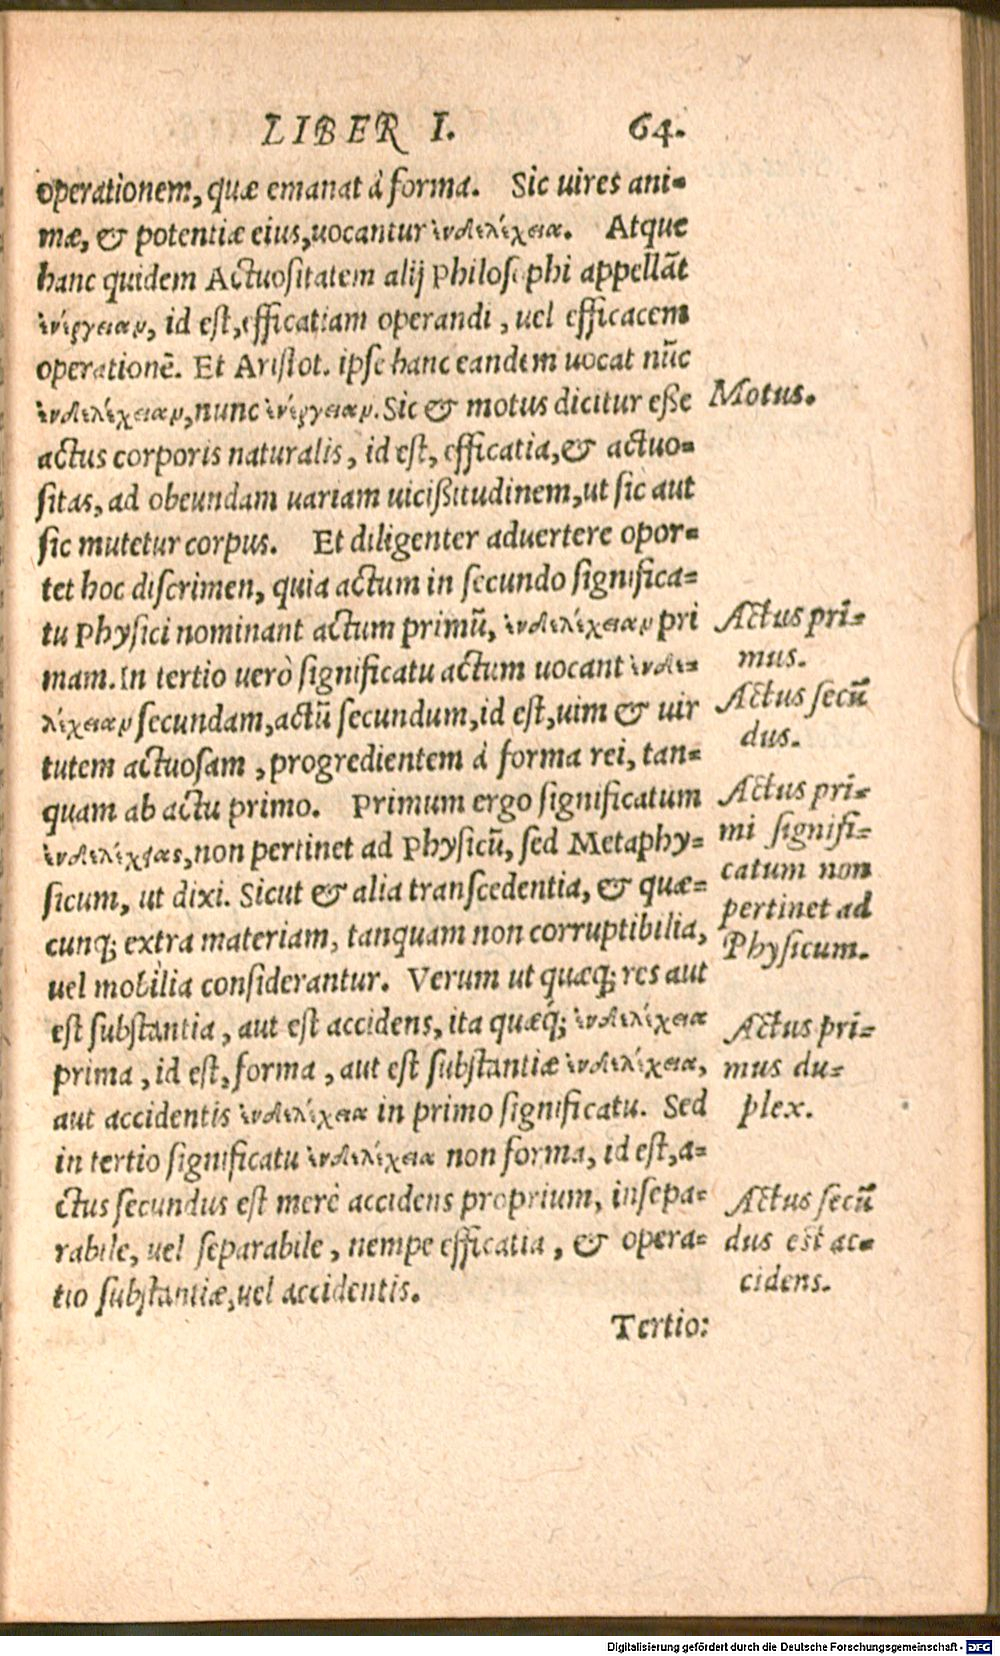 LIBER I. 64.
operationem, quæ emanat à forma. Sic uires ani=
mæ, & potentiæ eius, uocantur ἐνδελέχεια. Atque
hanc quidem Actuositatem alij Philosophi appellãt
ἐνέργειαν, id est, efficatiam operandi, uel efficacem
operationẽ. Et Aristot. ipse hanc eandem uocat nũc
ἐνδελέχειαν, nunc ἐνέργειαν. Sic & motus dicitur eſſe
actus corporis naturalis, id est, efficatia, & actuo=
sitas, ad obeundam uariam uicißitudinem, ut sic aut
sic mutetur corpus. Et diligenter aduertere opor=
tet hoc discrimen, quia actum in secundo significa=
tu Physici nominant actum primũ, ἐνδελέχειαν pri
mam. In tertio uerò significatu actum uocant ἐνδε=
λέχειαν secundam, actũ secundum, id est, uim & uir
tutem actuosam, progredientem à forma rei, tan=
quam ab actu primo. Primum ergo significatum
ἐνδελεχείας, non pertinet ad Physicũ, sed Metaphy=
sicum, ut dixi. Sicut & alia transcedentia, & quæ=
cunq; extra materiam, tanquam non corruptibilia,
uel mobilia considerantur. Verum ut quæq; res aut
est substantia, aut est accidens, ita quæq́; ἐνδελέχεια
prima, id est, forma, aut est substantiæ ἐνδελέχεια,
aut accidentis ἐνδελέχεια in primo significatu. Sed
in tertio significatu ἐνδελέχεια non forma, id est, a=
ctus secundus est merè accidens proprium, insepa=
rabile, uel separabile, nempe efficatia, & opera=
tio substantiæ, uel accidentis.
Tertio:
Motus.
Actus pri=
mus.
Actus secũ
dus.
Actus pri=
mi signifi=
catum non
pertinet ad
Physicum.
Actus pri=
mus du=
plex.
Actus secũ
dus est ac=
cidens.
Digitalisierung gefördert durch die Deutsche Forschungsgemeinschaft - DFG